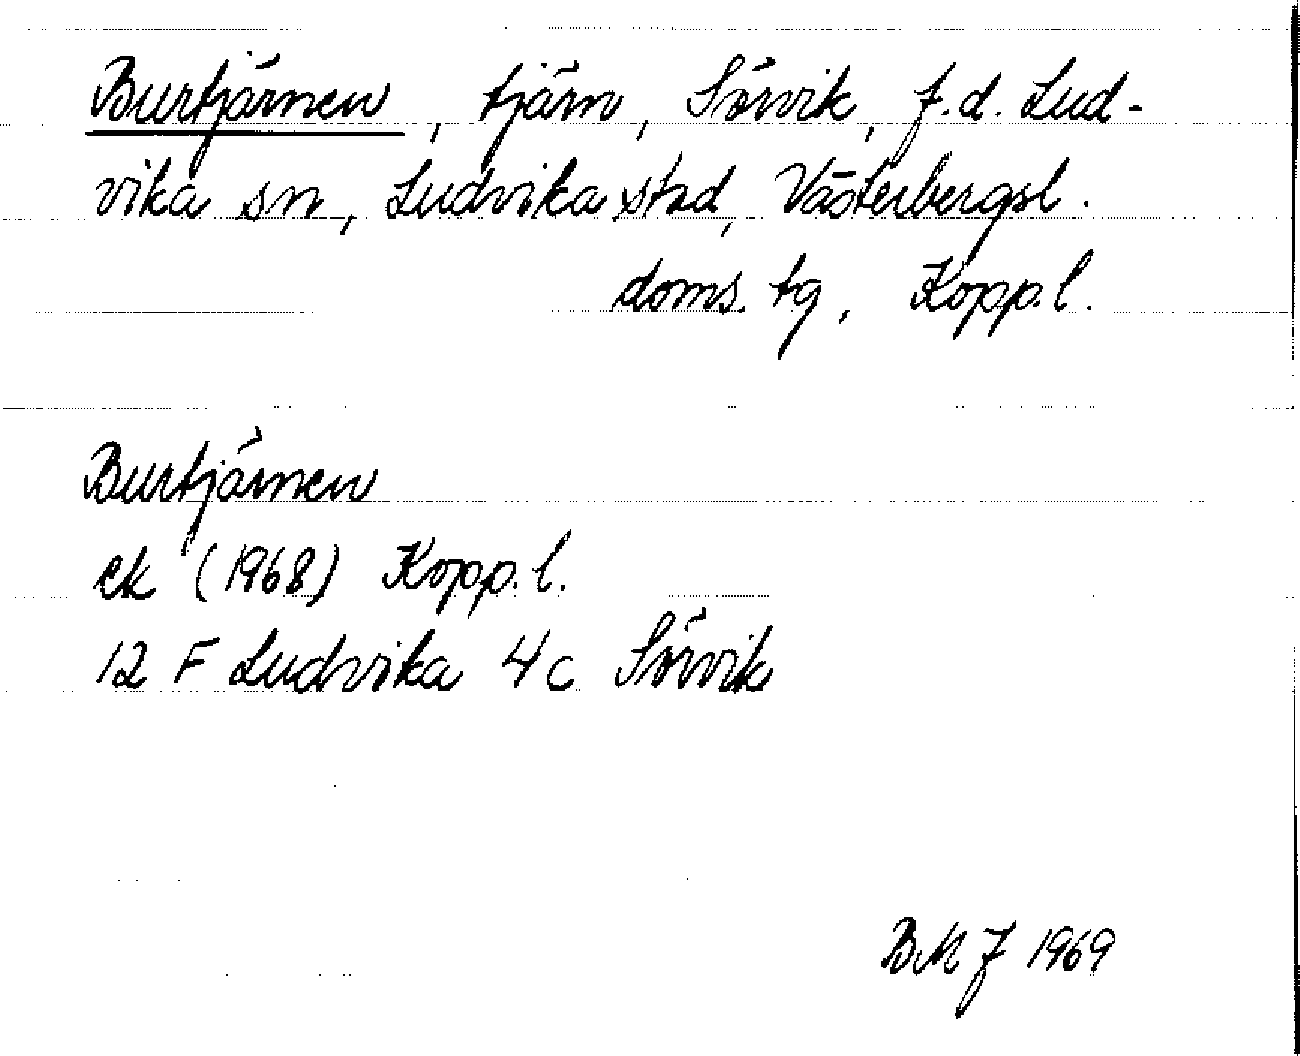 Burtjärnen, tjärn, Sörvik, f.d. Lud-
vika sn, Ludvika stad, Västerbergsl.
doms. tg, Kopp.l.
Burtjärnen
ek (1968) Kopp.l.
12 F Ludvika 4c Sörvik
BMJ 1969